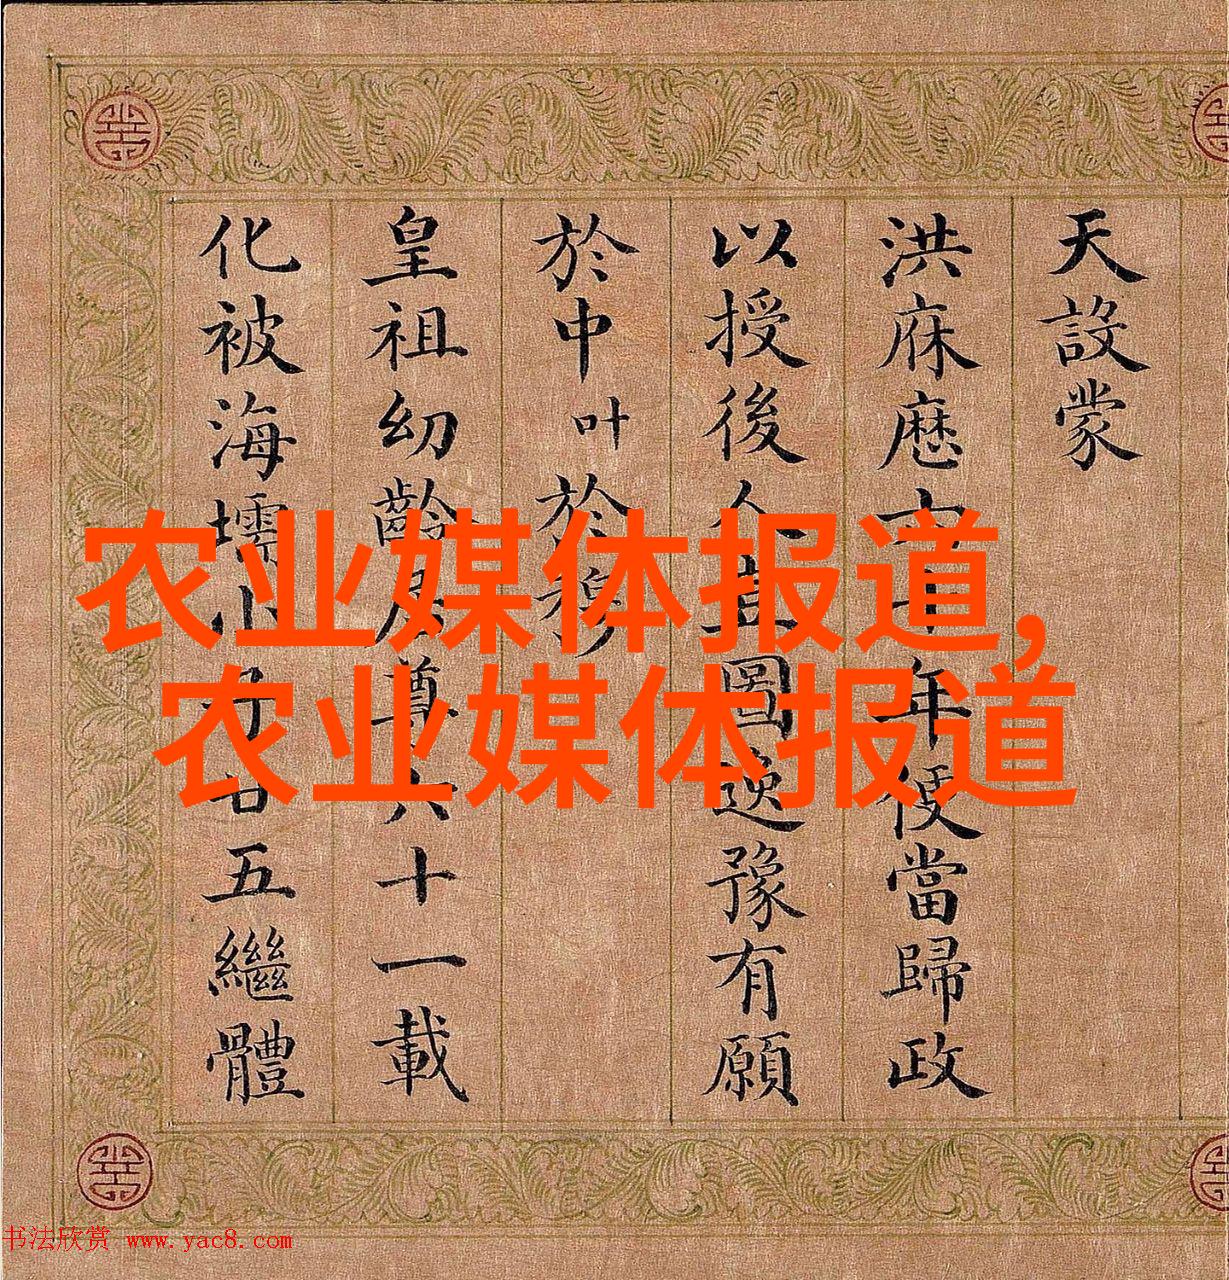 天設蒙
洪庥歷六十年便當歸政
以授後人豈圖逸豫有願
於中叶於穆
皇祖幼齡居尊六十一載
化被海壖小子五繼體
农业媒体报道,
农业媒体报道
书法欣赏 www.yac8.com